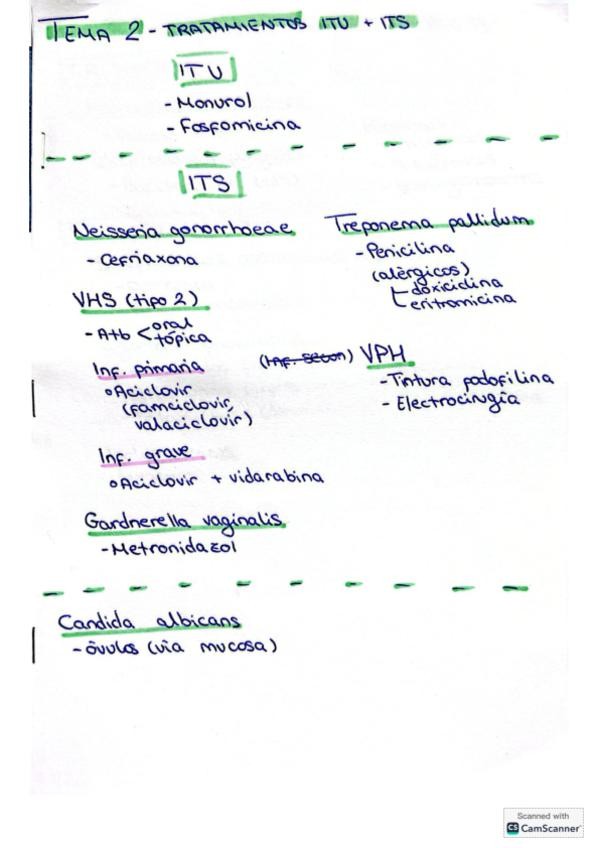 TEMA 2 - TRATAMIENTOS ITU + ITS
ITU
- Monurol
- Fosfomicina
ITS
Neisseria gonorrhoeae
- Cefriaxona
VHS (tipo 2)
- Atb < oral
tópica
Inf. primaria
Aciclovir
(famciclovir,
valaciclovir)
Inf. grave
Aciclovir + vidarabina
Gardnerella vaginalis
- Metronidazol
Treponema pallidum
- Penicilina
(alérgicos)
doxiciclina
eritromicina
(Inf. Secun) VPH
- Tintura podofilina
- Electrocirugía
Candida albicans
- óvulos (vía mucosa)
Scanned with
CS CamScanner